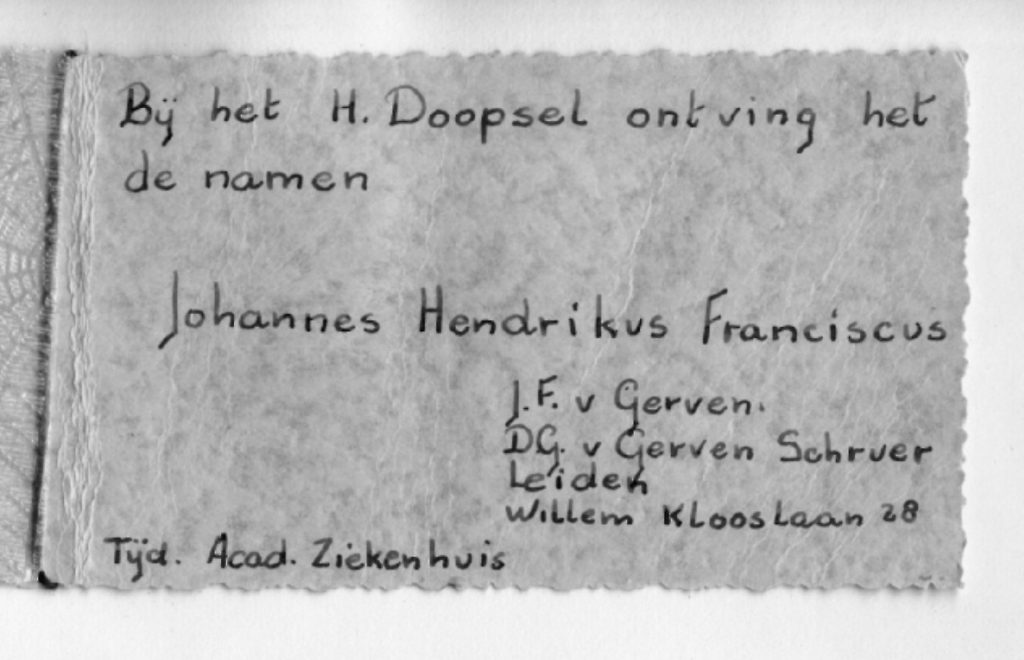 Bij het H. Doopsel ontving het
de namen
Johannes Hendrikus Franciscus
J.F. v Gerven.
D.G. v Gerven Schruer
Leiden
Willem Klooslaan 28
Tijd. Acad. Ziekenhuis